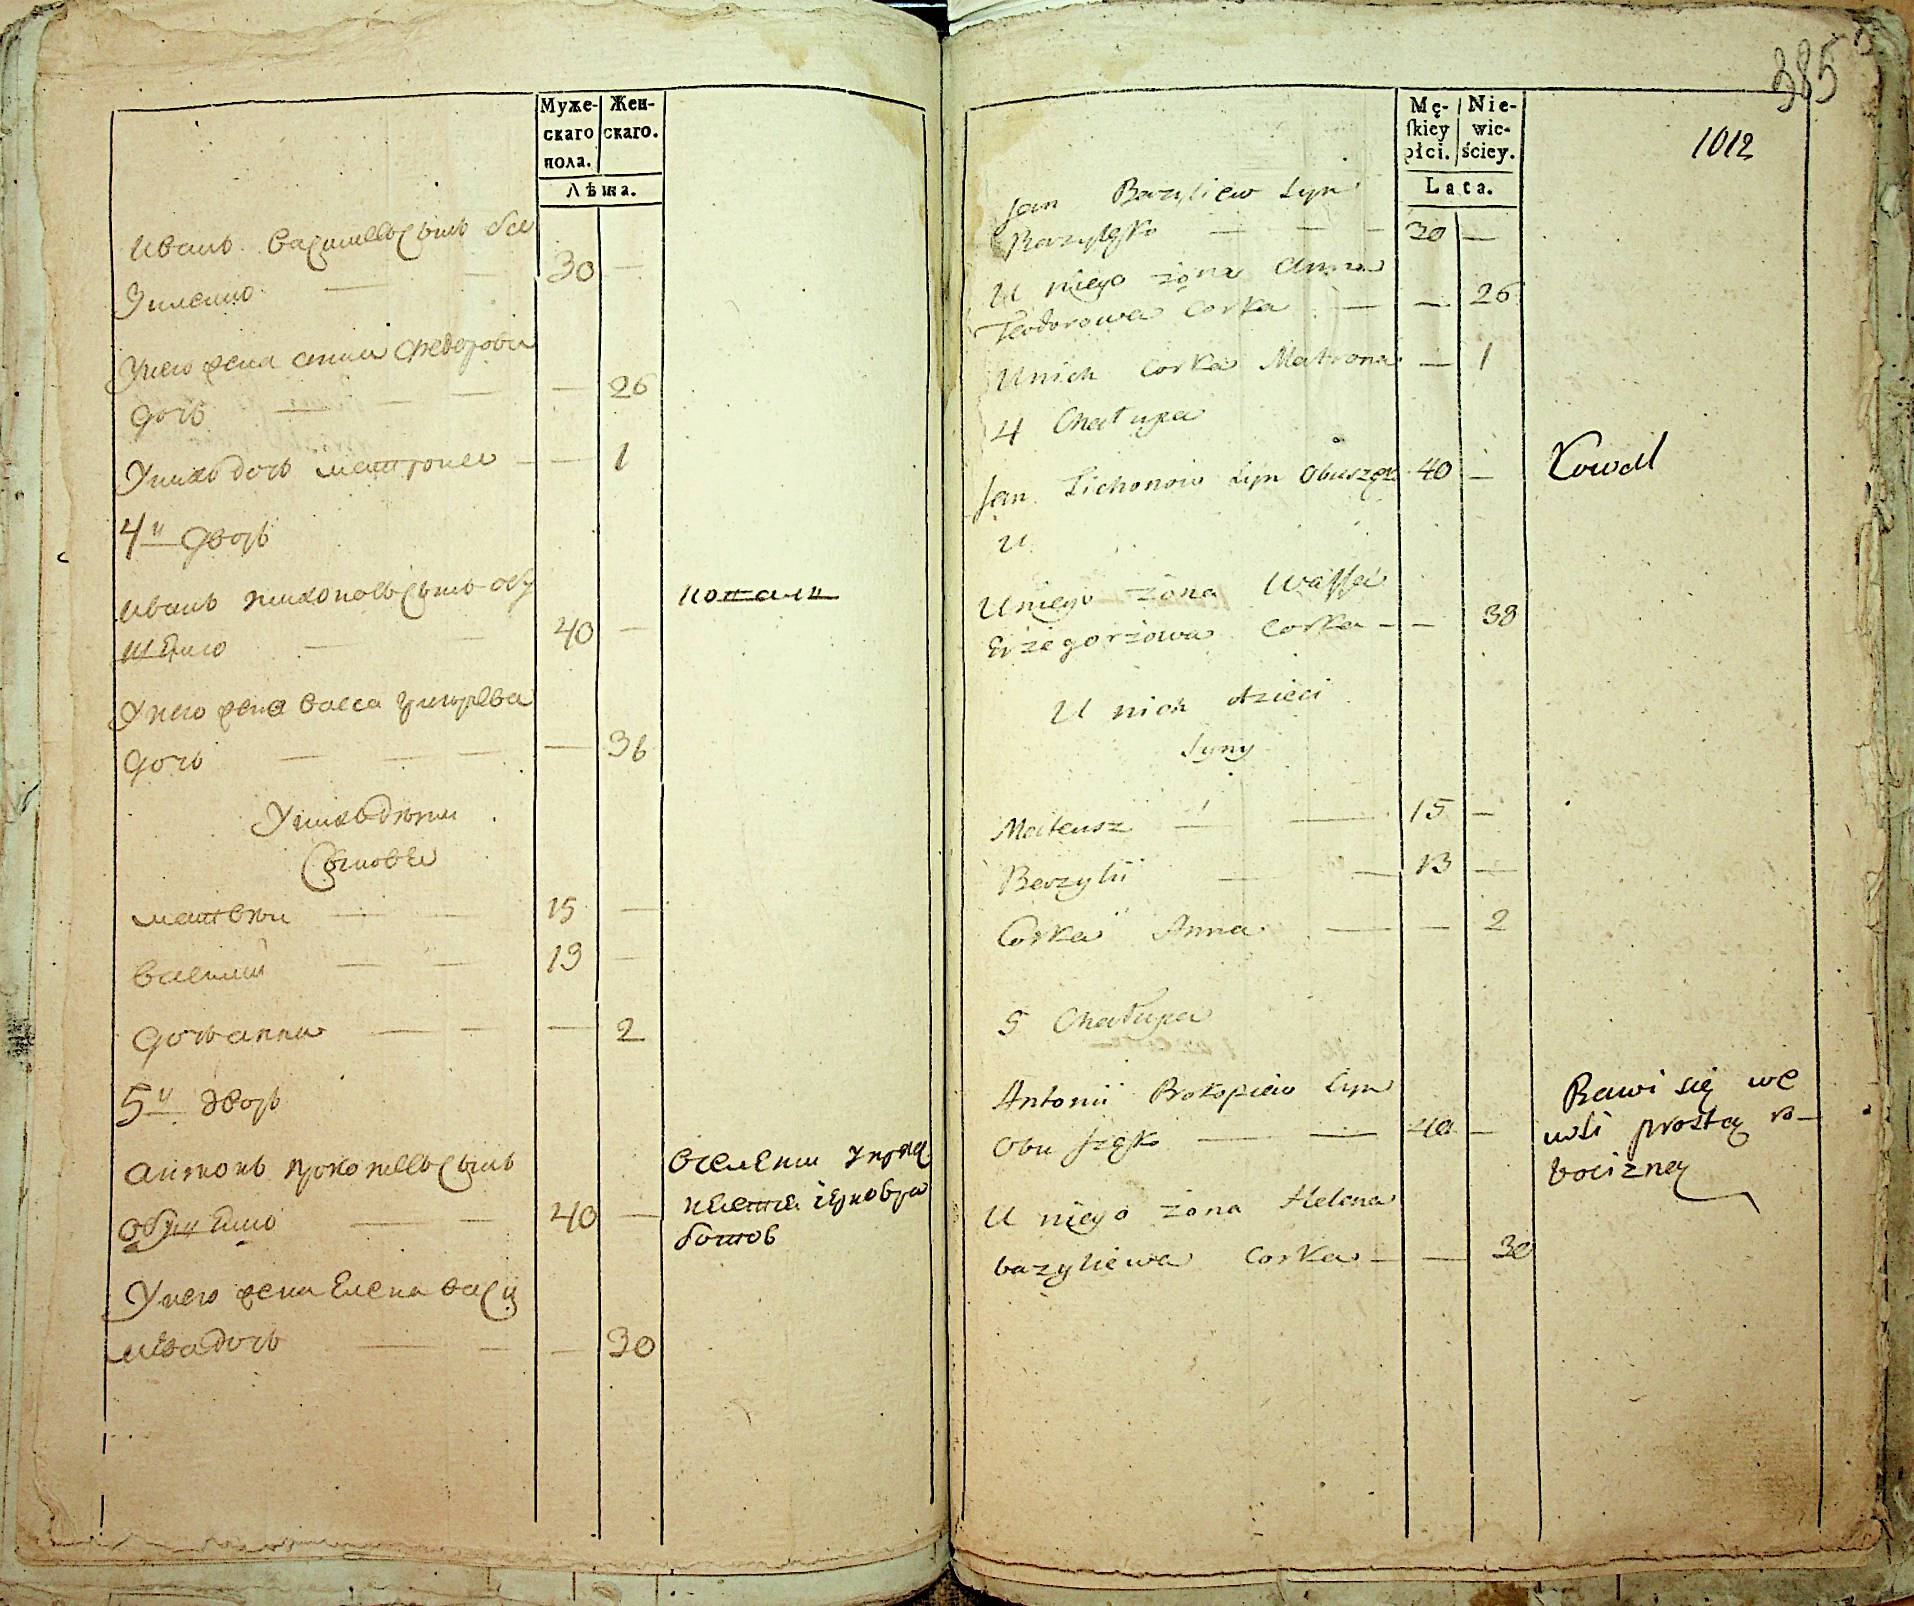 Муже-
скаго
пола.
Жен-
скаго.
Лѣта.
Иванъ Васильевъ сынъ ба
зиленко — 30 —
У него жена анна федорова
дочь — — — — 26
У нихъ дочь матрона — — 1
4й дворъ
Иванъ тихоновъ сынъ обу
шенко — — 40 —
У него жена васса григорева
дочь — — — — 36
У нихъ дѣти
Сыновья
матвѣй — — 15 —
василий — — 13 —
дочь анна — — — 2
5й дворъ
антонъ прокопиевъ сынъ
обушенко — — 40 —
У него жена Елена васи
лиева дочь — — — 30
коваль
385
1012
Mę-
skiey
płci.
Nie-
wie-
ściey.
Lata.
Jan Bazyliew Syn
Bazylęko — — — 30 —
U niego żona Anna
Teodorowa Corka — — 26
U nich Corka Matrona — 1
4 Chałupa
Jan Tichonow Syn Obuszęko 40 — Kowal
U
U niego żona Wassa
Grzegorzowa Corka — — 38
U nich dzieci
Syny
Mateusz — — 15 —
Bazylii — — 13 —
Corka Anna — — 2
5 Chałupa
Antonii Prokopiew Syn
Obuszęko — — 40 —
U niego żona Helena
bazyliewa Corka — — 30
Bawi się we
wsi prostą ro-
bocizną